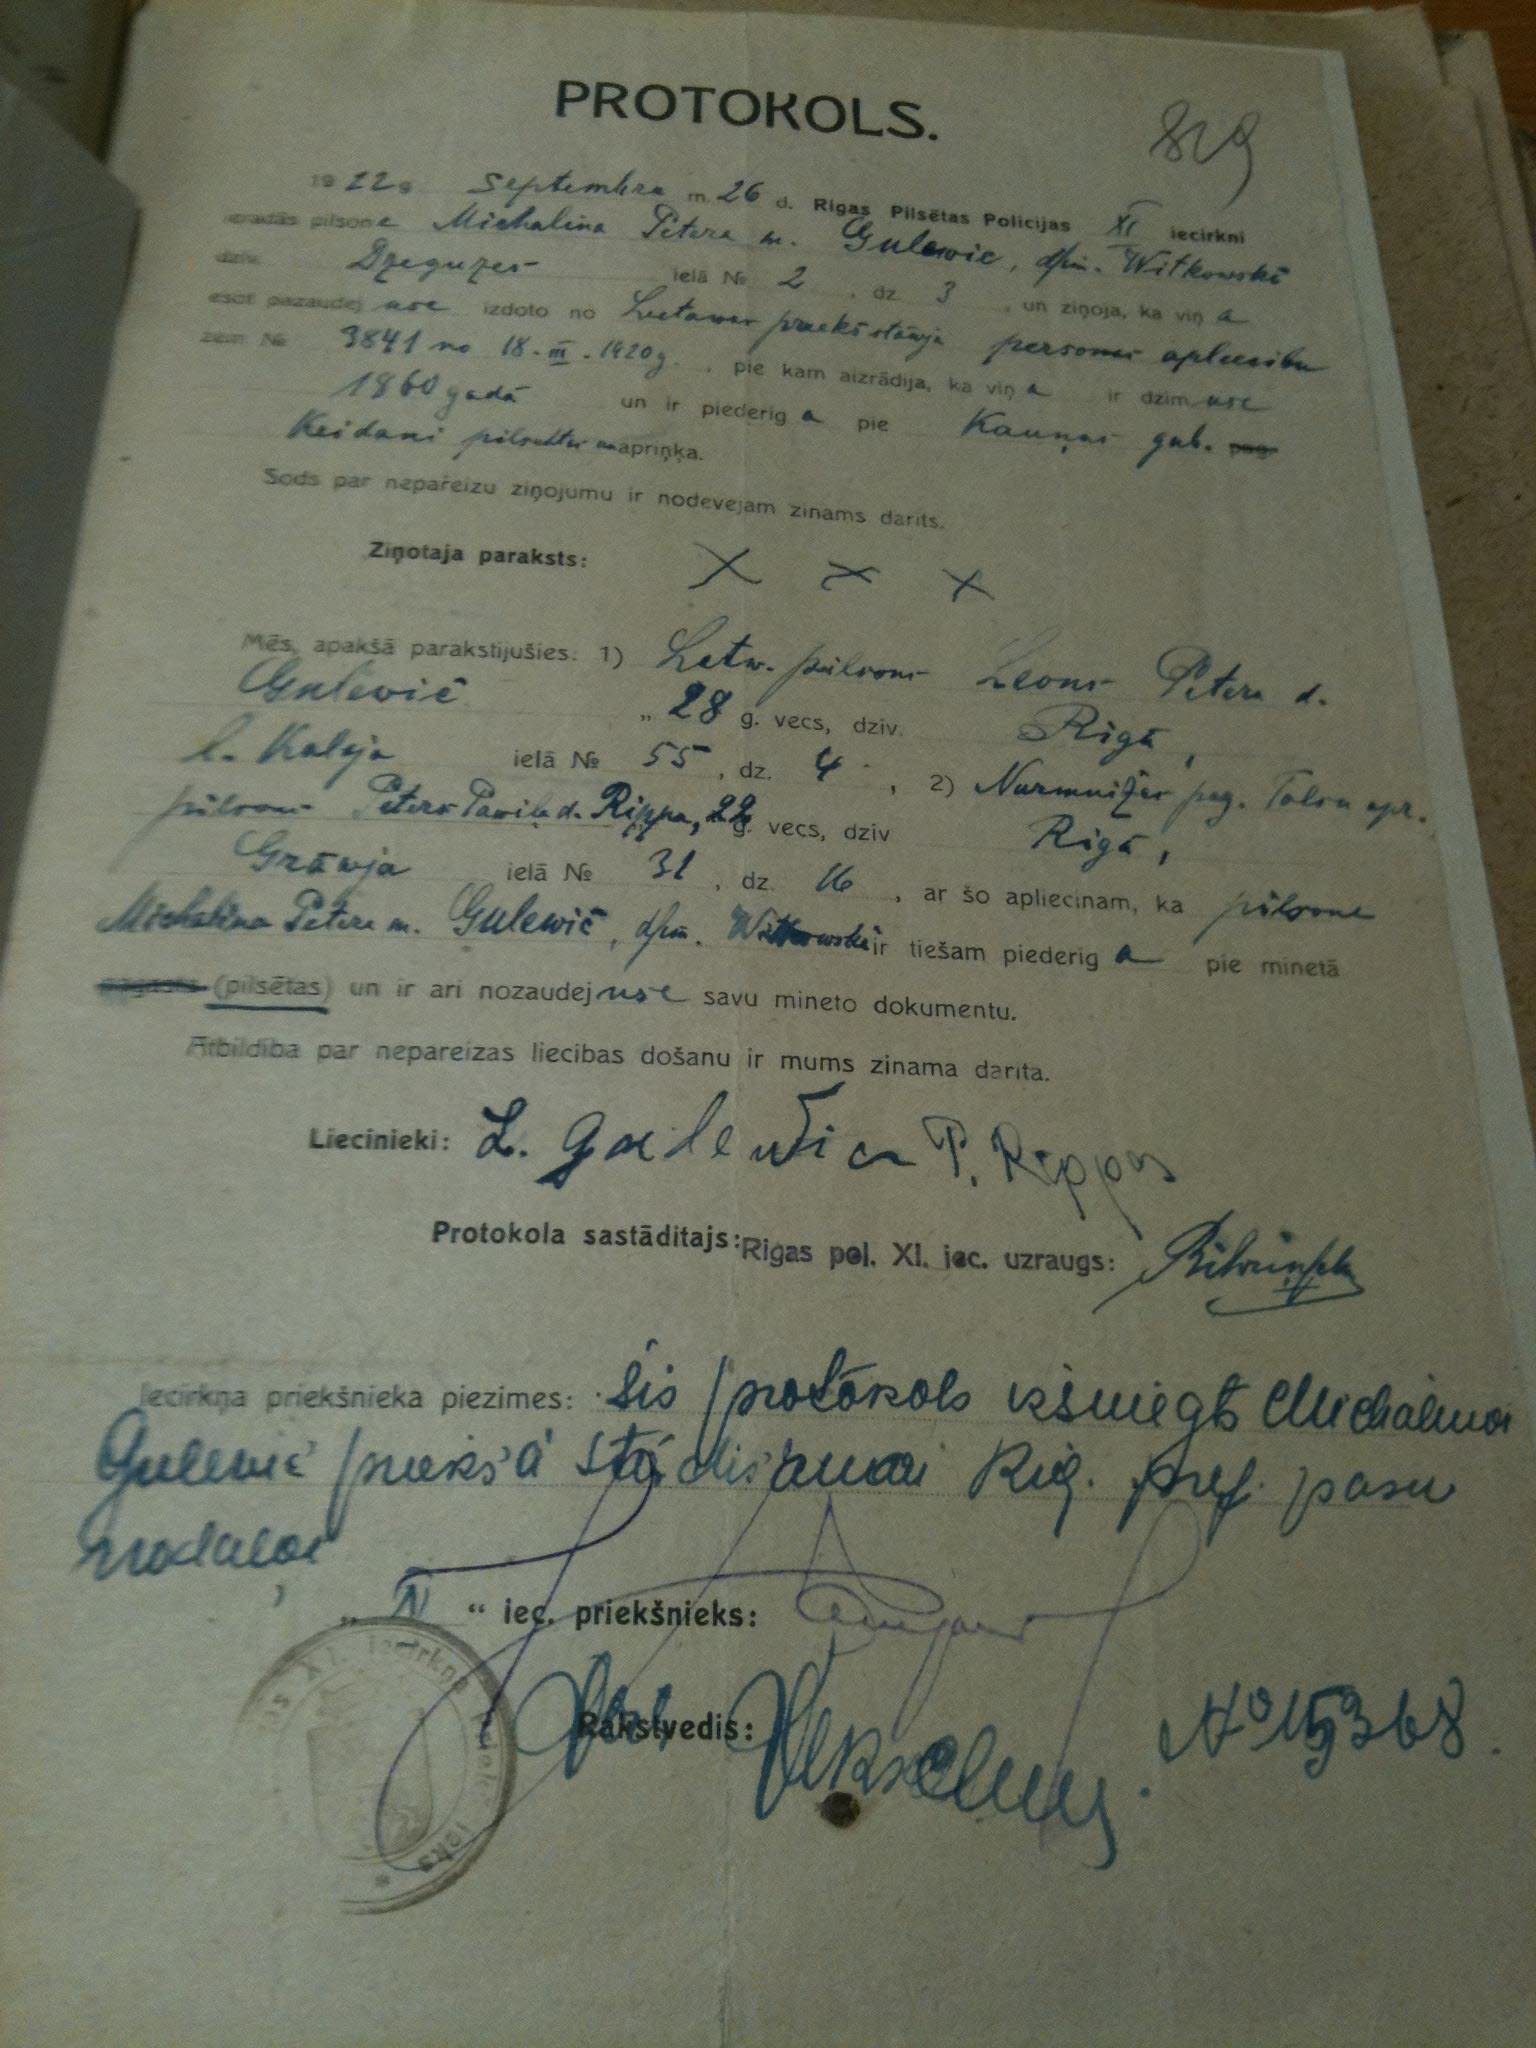 PROTOKOLS.
819
1922 g. Septembra m. 26 d. Rigas Pilsētas Policijas XI iecirkni
ieradās pilsone Michalina Pētera m. Gulewic, dzim. Witkowskē
dzīv. Dzeguzes ielā № 2, dz. 3, un ziņoja, ka viņa
esot pazaudejuse izdoto no Leetawas preekšstāwja personas apleecibu
zem № 3841 no 18.III.1920g., pie kam aizrādija, ka viņa ir dzimuse
1860 gadā un ir piederiga pie Kauņas gub. pag.
Keidani pilsehtas apriņķa.
Sods par nepareizu ziņojumu ir nodevejam zinams darits.
Ziņotaja paraksts: X X X
Mēs, apakšā parakstijušies: 1) Letw. pilsons Leons Pētera d.
Gulewič „ 28 g. vecs, dzīv. Rigā,
l. Kaleja ielā № 55, dz. 4, 2) Nurmuižas pag. Talsu apr.
pilsons Pēters Pawiļa d. Rippa, 22 g. vecs, dzīv Rigā,
Grāwja ielā № 31, dz. 16, ar šo apliecinam, ka pilsone
Michalina Pētera m. Gulewič, dzim. Witkowskē ir tiešam piederiga pie minetā
pagasta (pilsētas) un ir ari nozaudejuse savu mineto dokumentu.
Atbildiba par nepareizas liecibas došanu ir mums zinama darita.
Liecinieki: L. Gulewič P. Rippas
Protokola sastāditajs: Rigas pol. XI. iec. uzraugs:
Iecirkņa priekšnieka piezimes: Šis protokols izsniegts Michalinai
Gulewič preekšā stādišanai Rig. pref. pasu
nodaļai
„ XI “ iec. priekšnieks:
Rakstvedis: № 15368.
XI. iecirkņa